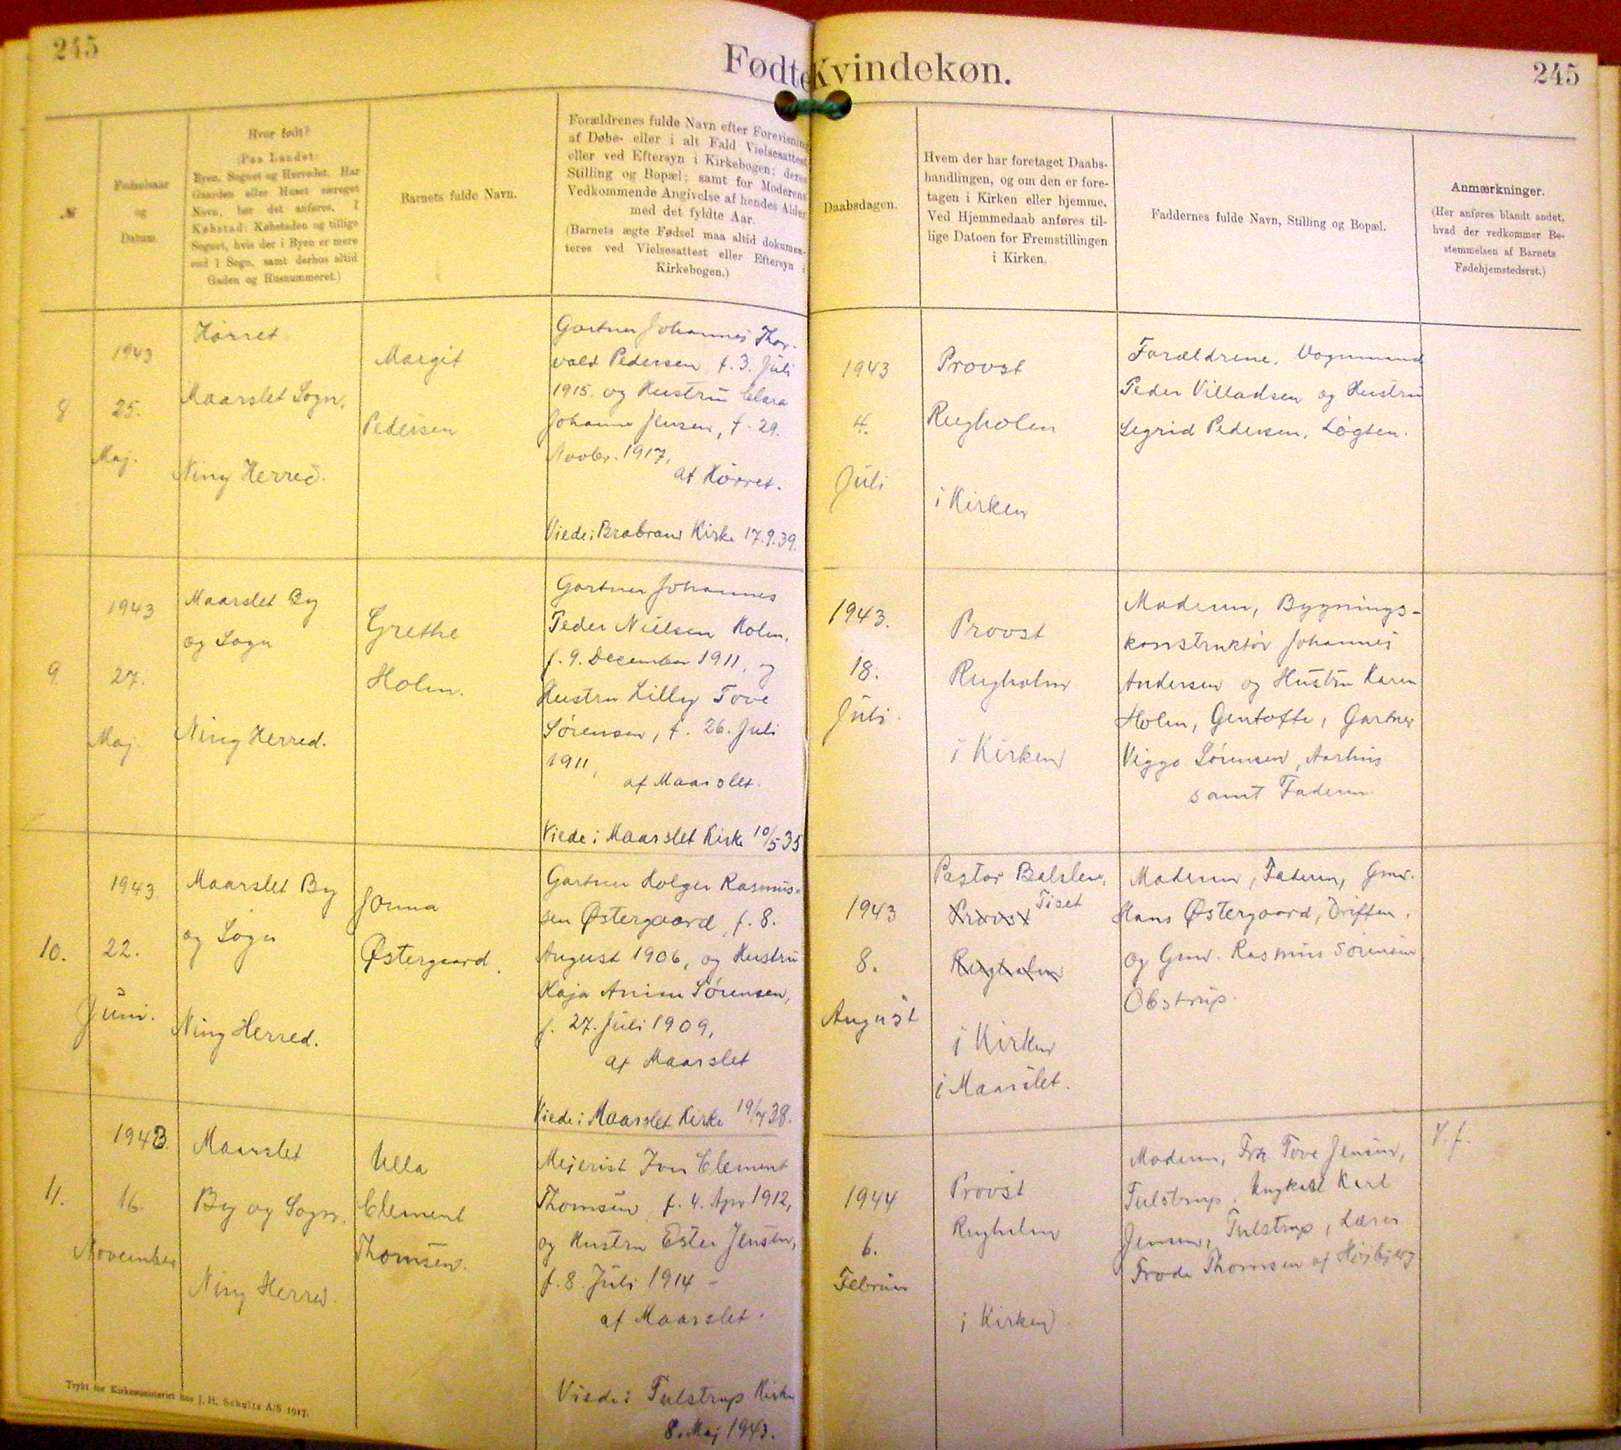 245
Fødte Kvindekøn.
245
№
Fødselsaar
og
Datum.
Hvor født?
(Paa Landet:
Byen, Sognet og Herredet. Har
Gaarden eller Huset særeget
Navn, bør det anføres. I
Købstad: Købstaden og tillige
Sognet, hvis der i Byen er mere
end 1 Sogn, samt derhos altid
Gaden og Husnummeret.)
Barnets fulde Navn.
Forældrenes fulde Navn efter Forevisning
af Døbe- eller i alt Fald Vielsesattest
eller ved Eftersyn i Kirkebogen; deres
Stilling og Bopæl; samt for Moderens
Vedkommende Angivelse af hendes Alder
med det fyldte Aar.
(Barnets ægte Fødsel maa altid dokumen-
teres ved Vielsesattest eller Eftersyn i
Kirkebogen.)
Daabsdagen.
Hvem der har foretaget Daabs-
handlingen, og om den er fore-
tagen i Kirken eller hjemme.
Ved Hjemmedaab anføres til-
lige Datoen for Fremstillingen
i Kirken.
Faddernes fulde Navn, Stilling og Bopæl.
Anmærkninger.
(Her anføres blandt andet,
hvad der vedkommer Be-
stemmelsen af Barnets
Fødehjemstedsret.)
8
1943
25.
Maj.
Hørret
Maarslet Sogn,
Ning Herred.
Margit
Pedersen
Gartner Johannes Thor-
vald Pedersen, f. 3. Juli
1915. og Hustru Clara
Johanne Jensen, f. 29.
Novbr. 1917,
af Hørret.
Viede i Brabrand Kirke 17.9.39.
1943
4.
Juli
Provst
Rugholm
i Kirken
Forældrene, Vognmand
Peder Villadsen og Hustru
Sigrid Pedersen, Løgten.
9.
1943
27.
Maj
Maarslet By
og Sogn
Ning Herred.
Grethe
Holm.
Gartner Johannes
Peder Nielsen Holm,
f. 9. December 1911, og
Hustru Lilly Tove
Sørensen, f. 26. Juli
1911,
af Maarslet.
Viede i Maarslet Kirke 10/5 35
1943.
18.
Juli.
Provst
Rugholm
i Kirken
Moderen, Bygnings-
konstruktør Johannes
Andersen og Hustru Karen
Holm, Gentofte, Gartner
Viggo Sørensen, Aarhus
samt Faderen
10.
1943
22.
Juni.
Maarslet By
og Sogn
Ning Herred.
Jonna
Østergaard.
Gartner Holger Rasmus-
sen Østergaard, f. 8.
August 1906, og Hustru
Kaja Anine Sørensen,
f. 27. Juli 1909,
af Maarslet
Viede i Maarslet Kirke 19/4 38.
1943
8.
August
Pastor Balslev,
Tiset
Provst
Rugholm
i Kirken
i Maarslet.
Moderen, Faderen, Gmd.
Hans Østergaard, Driften,
og Gmd. Rasmus Sørensen
Obstrup.
11.
1943
16.
November
Maarslet
By og Sogn,
Ning Herred.
Ulla
Clement
Thomsen.
Mejerist Clement
Thomsen f. 4. Apr 1912,
og Hustru Ester Jensen,
f. 8. Juli 1914 -
af Maarslet.
Viede i Tulstrup Kirke
8. Maj 1943.
1944
6.
Februar
Provst
Rugholm
i Kirken
Moderen, Frk Tove Jensen,
Tulstrup, Ungkarl Karl
Jensen, Tulstrup, Lærer
Frode Thomsen af Højbjerg
V. f.
Trykt for Kirkeministeriet hos J. H. Schultz A/S 1917.